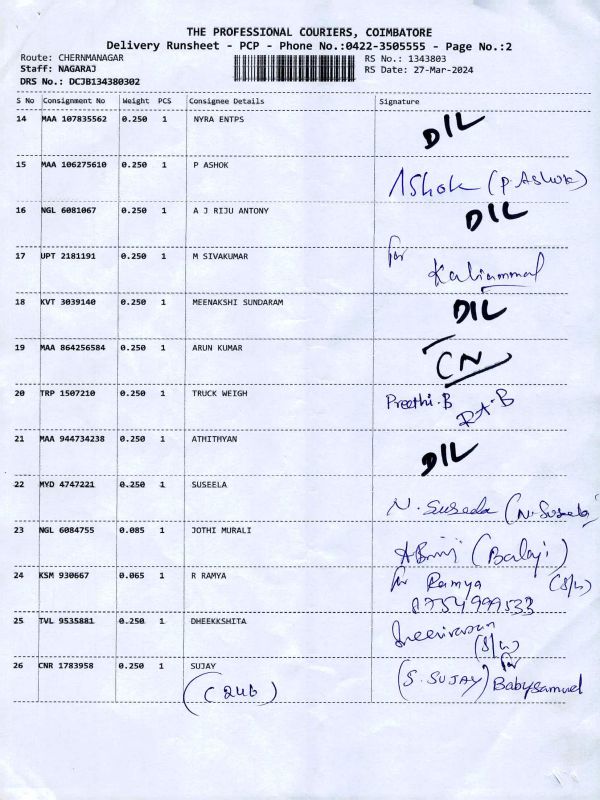 THE PROFESSIONAL COURIERS, COIMBATORE
Delivery Runsheet - PCP - Phone No.:0422-3505555 - Page No.:2
Route: CHERNMANAGAR
RS No.: 1343803
Staff: NAGARAJ
RS Date: 27-Mar-2024
DRS No.: DCJB134380302
S No Consignment No Weight PCS Consignee Details Signature
14 MAA 107835562 0.250 1 NYRA ENTPS DIL
15 MAA 106275610 0.250 1 P ASHOK Ashok (P. Ashok)
16 NGL 6081067 0.250 1 A J RIJU ANTONY DIL
17 UPT 2181191 0.250 1 M SIVAKUMAR for
Kaliammal
18 KVT 3039140 0.250 1 MEENAKSHI SUNDARAM DIL
19 MAA 864256584 0.250 1 ARUN KUMAR CN
20 TRP 1507210 0.250 1 TRUCK WEIGH Preethi.B
21 MAA 944734238 0.250 1 ATHITHYAN DIL
22 MYD 4747221 0.250 1 SUSEELA N. Suseela (N. Suseela)
23 NGL 6084755 0.085 1 JOTHI MURALI (Balaji)
24 KSM 930667 0.065 1 R RAMYA for Ramya (S/w)
8754999533
25 TVL 9535881 0.250 1 DHEEKKSHITA Sreenivasan
(S/w)
26 CNR 1783958 0.250 1 SUJAY (S. SUJAY) for Babysamuel
(246)